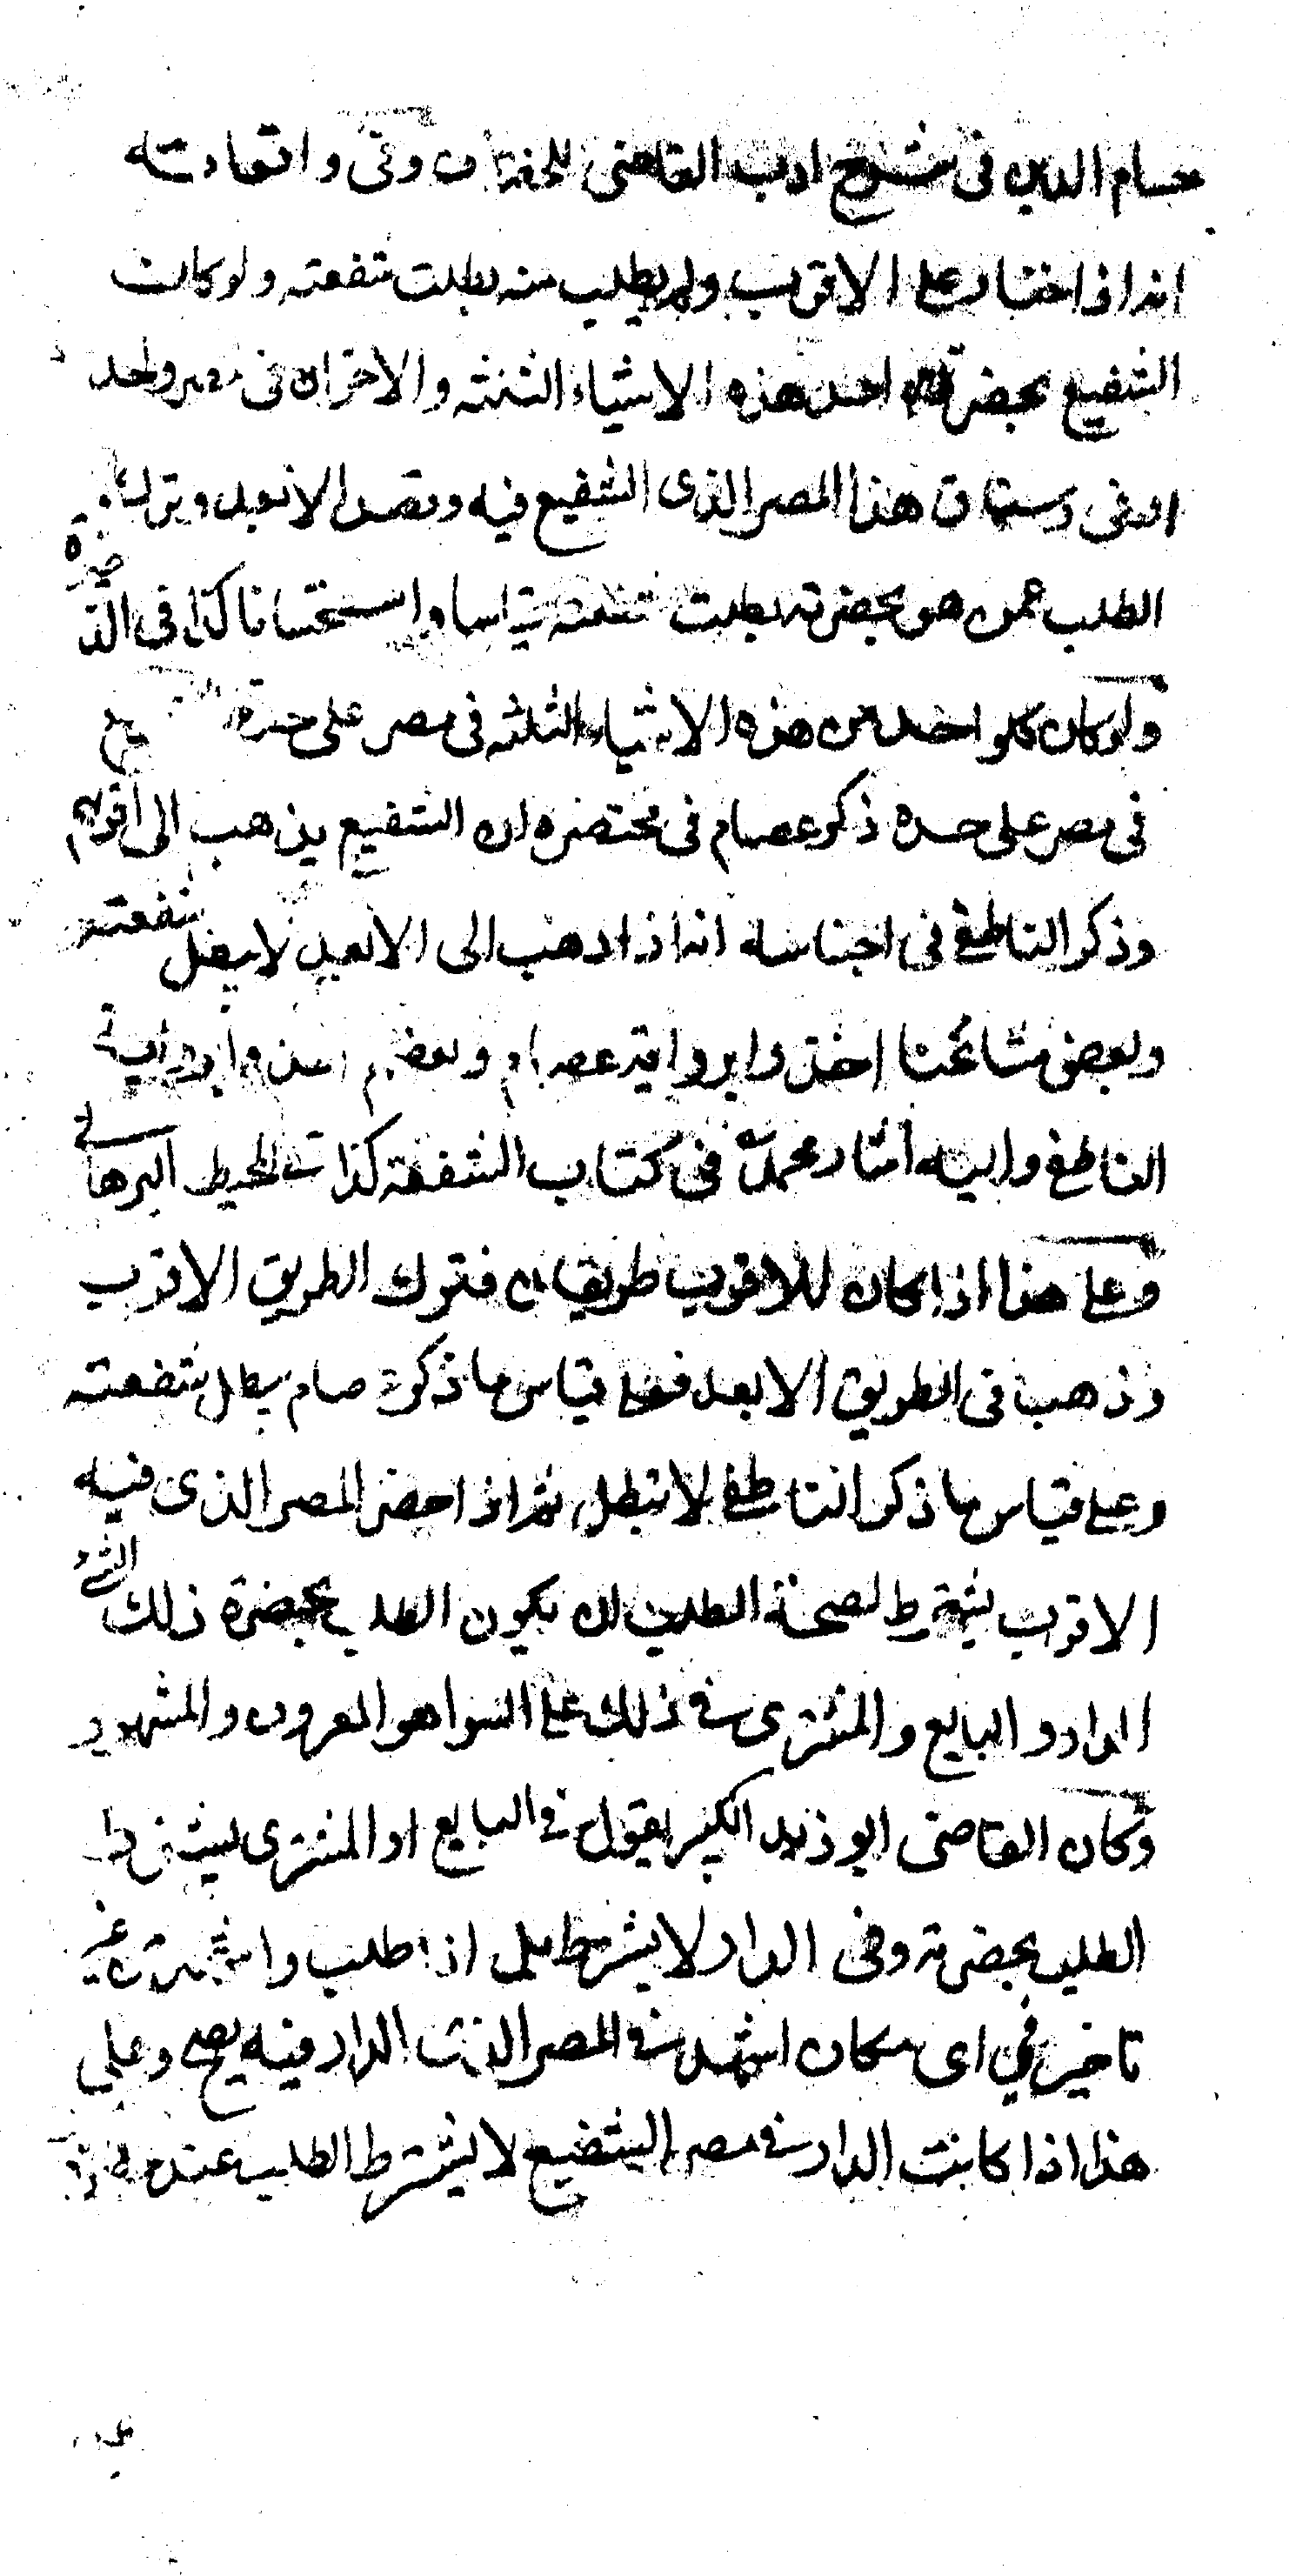 حسام الدين فى شرح ادب القاضى للخصاف وفى واقعاته
انه اذا اختار على الاقرب ولم يطلب منه بطلت شفعته ولو كان
الشفيع بحضرة احد هذه الاشياء الثلثة والاخران فى مصر واحد
او فى رستاق هذا المصر الذى الشفيع فيه وقصد الابعد وترك
الطلب عمن هو بحضرته بطلت شفعته قياسا واستحسانا كذا فى الذخيرة
ولو كان كل واحد من هذه الاشياء الثلثة فى مصر على حدة
فى مصر على حده ذكر عصام فى مختصره ان الشفيع يذهب الى اقربهم
وذكر الناطفى فى اجناسه انه اذا ذهب الى الابعد لا يبطل شفعته
وبعض مشائخنا اخذوا برواية عصام وبعضهم اخذوا برواية
الناطفى واليه اشار محمد فى كتاب الشفعة كذا فى المحيط البرهانى
وعلى هذا اذا كان للاقرب طريقان فترك الطريق الاقرب
وذهب فى الطريق الابعد فعلى قياس ما ذكره عصام يبطل شفعته
وعلى قياس ما ذكر الناطفى لا تبطل ثم اذا حضر المصر الذى فيه
الاقرب يشترط لصحة الطلب ان يكون الطلب بحضرة ذلك الشئ
الدار والبايع والمشترى فى ذلك على السوا هو المعروف والمشهور
وكان القاضى ابو زيد الكبير يقول فى البايع او المشترى يشترط
الطلب بحضرته وفى الدار لا يشترط بل اذا طلب واشهد من غير
تاخير فى اى مكان اشهد فى المصر الذى الدار فيه يصح وعلى
هذا اذا كانت الدار فى مصر الشفيع لا يشترط الطلب عند